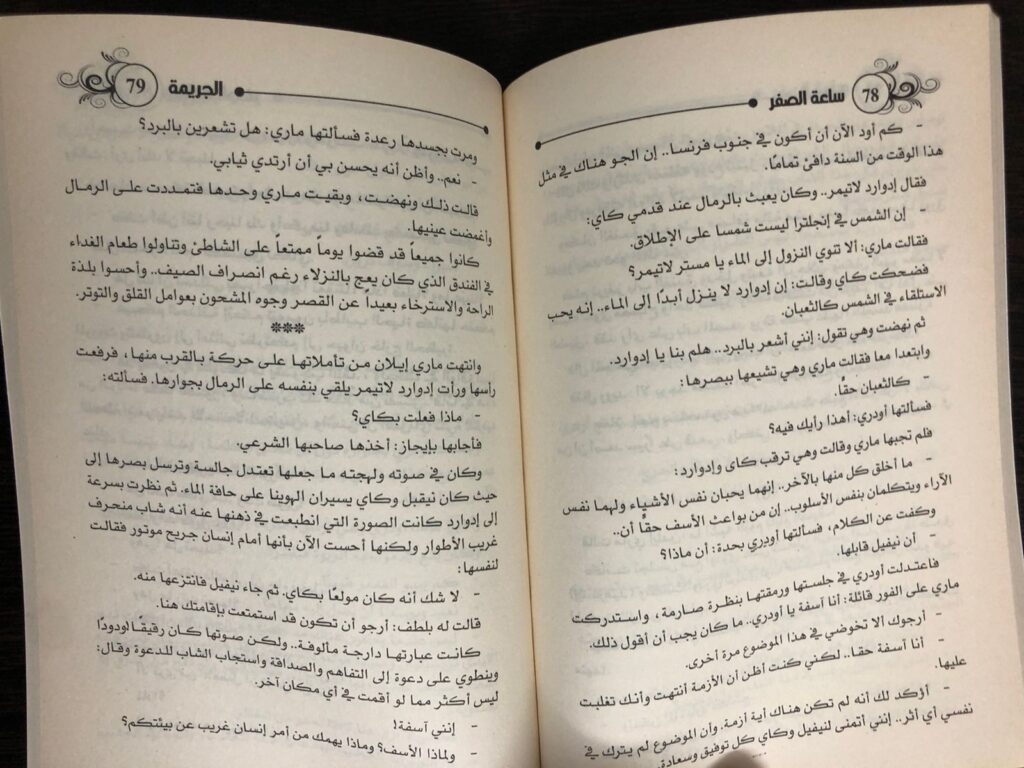 78 ساعة الصفر
- كم أود الآن أن أكون في جنوب فرنسا.. إن الجو هناك في مثل
هذا الوقت من السنة دافئ تمامًا.
فقال إدوارد لاتيمر.. وكان يعبث بالرمال عند قدمي كاي:
- إن الشمس في إنجلترا ليست شمسا على الإطلاق.
فقالت ماري: ألا تنوي النزول إلى الماء يا مستر لاتيمر؟
فضحكت كاي وقالت: إن إدوارد لا ينزل أبدًا إلى الماء.. إنه يحب
الاستلقاء في الشمس كالثعبان.
ثم نهضت وهي تقول: إنني أشعر بالبرد.. هلم بنا يا إدوارد.
وابتعدا معا فقالت ماري وهي تشيعها ببصرها:
- كالثعبان حقًا.
فسألتها أودري: أهذا رأيك فيه؟
فلم تجبها ماري وقالت وهي ترقب كاى وإدوارد:
- ما أخلق كل منها بالآخر.. إنهما يحبان نفس الأشياء ولهما نفس
الآراء ويتكلمان بنفس الأسلوب.. إن من بواعث الأسف حقًا أن..
وكفت عن الكلام، فسألتها أودري بحدة: أن ماذا؟
- أن نيفيل قابلها.
فاعتدلت أودري في جلستها ورمقتها بنظرة صارمة، واستدركت
ماري على الفور قائلة: أنا آسفة يا أودري.. ما كان يجب أن أقول ذلك.
- أرجوك ألا تخوضي في هذا الموضوع مرة أخرى.
- أنا آسفة حقا.. لكني كنت أظن أن الأزمة أنتهت وأنك تغلبت
عليها.
- أؤكد لك أنه لم تكن هناك أية أزمة. وأن الموضوع لم يترك في
نفسي أي أثر.. إنني أتمنى لنيفيل وكاي كل توفيق وسعادة.
79 الجريمة
ومرت بجسدها رعدة فسألتها ماري: هل تشعرين بالبرد؟
- نعم.. وأظن أنه يحسن بي أن أرتدي ثيابي.
قالت ذلك ونهضت، وبقيت ماري وحدها فتمددت على الرمال
وأغمضت عينيها.
كانوا جميعاً قد قضوا يوماً ممتعاً على الشاطئ وتناولوا طعام الغداء
في الفندق الذي كان يعج بالنزلاء رغم انصراف الصيف.. وأحسوا بلذة
الراحة والاسترخاء بعيداً عن القصر وجوه المشحون بعوامل القلق والتوتر.
***
وانتهت ماري إيلان من تأملاتها على حركة بالقرب منها، فرفعت
رأسها ورأت إدوارد لاتيمر يلقي بنفسه على الرمال بجوارها. فسألته:
- ماذا فعلت بكاي؟
فأجابها بإيجاز: أخذها صاحبها الشرعي.
وكان في صوته ولهجته ما جعلها تعتدل جالسة وترسل بصرها إلى
حيث كان نيقبل وكاي يسيران الهوينا على حافة الماء. ثم نظرت بسرعة
إلى إدوارد كانت الصورة التي انطبعت في ذهنها عنه أنه شاب منحرف
غريب الأطوار ولكنها أحست الآن بأنها أمام إنسان جريح موتور فقالت
لنفسها:
- لا شك أنه كان مولعًا بكاي. ثم جاء نيفيل فانتزعها منه.
قالت له بلطف: أرجو أن تكون قد استمتعت بإقامتك هنا.
كانت عبارتها دارجة مألوفة.. ولكن صوتها كان رقيقًا ودودًا
وينطوي على دعوة إلى التفاهم والصداقة واستجاب الشاب للدعوة وقال:
ليس أكثر مما لو أقمت في أي مكان آخر.
- إنني آسفة!
- ولماذا الأسف؟ وماذا يهمك من أمر إنسان غريب عن بيئتكم؟